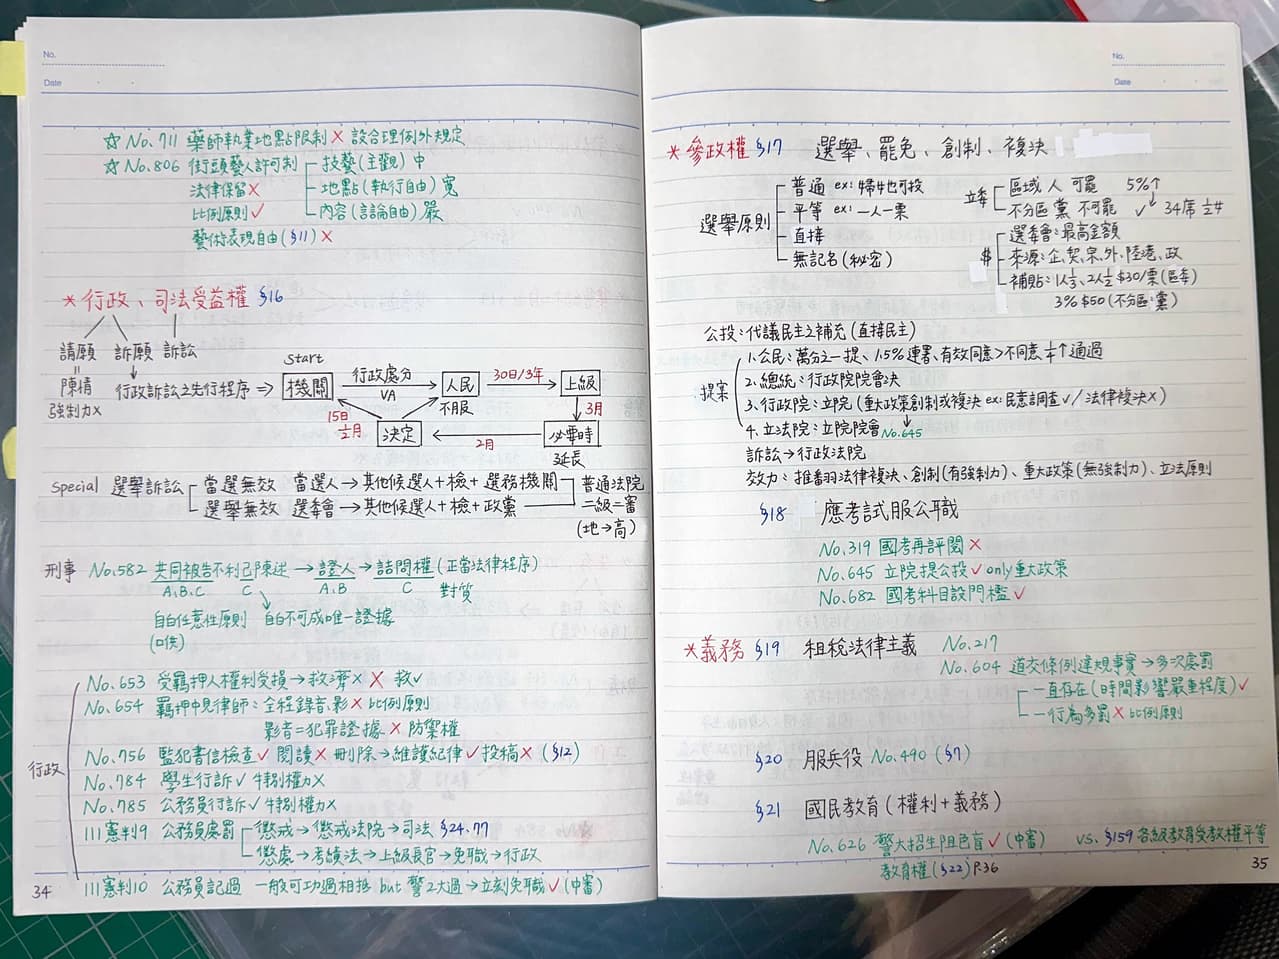 No.
Date
☆ No.711 藥師執業地點限制 × 設合理例外規定
☆ No.806 街頭藝人許可制 技藝(主觀)中
法律保留× 地點(執行自由)寬
比例原則✓ 內容(言論自由)嚴
藝術表現自由(§11)×
*行政、司法受益權 §16
請願 訴願 訴訟
= 
陳情 行政訴訟之先行程序⇒
強制力×
start
機關 行政處分 VA 人民 30日/3年 上級
不服
15日 1/2月 決定 2月 必要時 3月
延長
special 選舉訴訟 當選無效 當選人→其他候選人+檢+選務機關 普通法院
選舉無效 選委會→其他候選人+檢+政黨 二級二審
(地→高)
刑事 No.582 共同被告不利己陳述→證人→詰問權(正當法律程序)
A、B、C C A、B C 對質
自白任意性原則 自白不可成唯一證據
(口供)
行政
No.653 受羈押人權利受損→救濟× × 救✓
No.654 羈押中見律師:全程錄音、影×比例原則
影音=犯罪證據 ×防禦權
No.756 監犯書信檢查✓ 閱讀× 刪除→維護紀律✓ 投稿×(§12)
No.784 學生行訴✓ 特別權力×
No.785 公務員行訴✓ 特別權力×
111憲判9 公務員處罰 懲戒→懲戒法院→司法 §24.77
懲處→考績法→上級長官→免職→行政
111憲判10 公務員記過 一般可功過相抵 but 警2大過→立刻免職✓(中審)
34
No.
Date
*參政權 §17 選舉、罷免、創制、複決
選舉原則 普通 ex:婦女也可投
平等 ex:一人一票
直接
無記名(秘密)
立委 區域 人 可罷 5%↑
不分區 黨 不可罷 ✓ 34席 1/2女
$ 選委會:最高金額
來源:企、契、宗、外、陸港、政
補貼:1人1/3、2人1/2 $30/票(區委)
3% $50(不分區:黨)
公投:代議民主之補充(直接民主)
提案
1.公民:萬分之一提、1.5%連署、有效同意>不同意 1/4↑通過
2.總統:行政院院會決
3.行政院:立院(重大政策創制或複決 ex:民意調查✓/法律複決×)
4.立法院:立院院會 No.645
訴訟→行政法院
效力:推翻法律複決、創制(有強制力)、重大政策(無強制力)、立法原則
§18 應考試服公職
No.319 國考再評閱×
No.645 立院提公投✓only重大政策
No.682 國考科目設門檻✓
*義務 §19 租稅法律主義 No.217
No.604 道交條例違規事實→多次處罰
一直存在(時間影響嚴重程度)✓
一行為多罰×比例原則
§20 服兵役 No.490 (§7)
§21 國民教育(權利+義務)
No.626 警大招生阻色盲✓(中審) vs. §159 各級教育受教權平等
教育權(§22)P.36
35